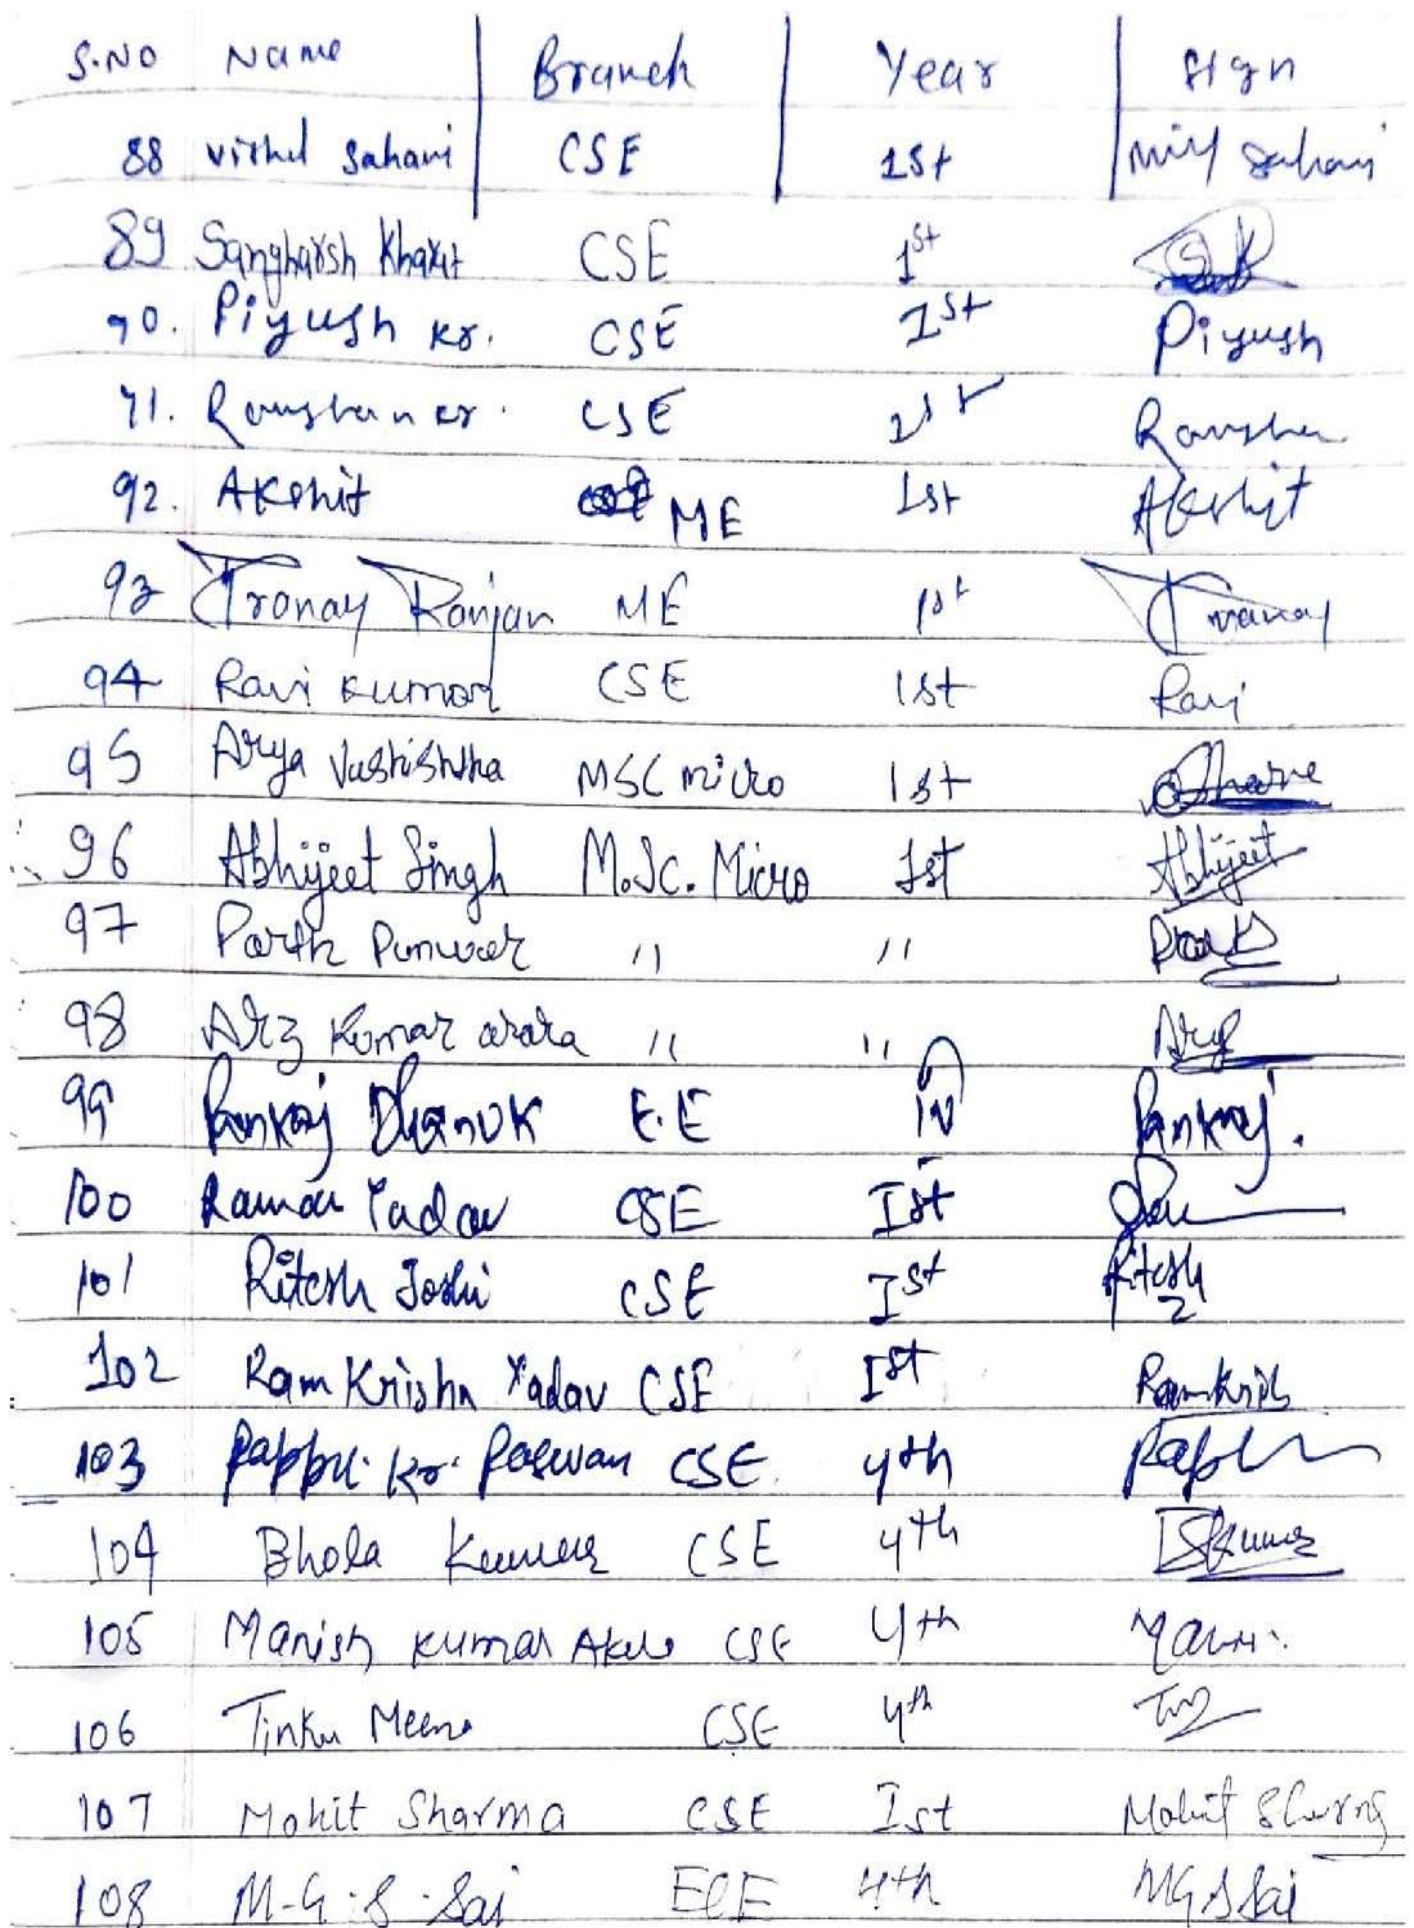 S.No Name Branch Year Sign
88 Vishal Sahani CSE 1st Sahani
89 Sangharsh Kharat CSE 1st
90. Piyush Kr. CSE 1st Piyush
91. Raushan Kr. CSE 1st Raushan
92. Akshit ME 1st Akshit
93 Pranay Ranjan ME 1st Pranay
94 Ravi Kumar CSE 1st Ravi
95 Arya Vashishtha MSC micro 1st
96 Abhijeet Singh M.Sc. Micro 1st Abhijeet
97 Parth Punwar " "
98 Kumar " "
99 Pankaj Dhanuk E.E IV Pankaj.
100 Raman Yadav CSE Ist
101 Ritesh Joshi CSE Ist Ritesh
102 Ram Krishn Yadav CSE Ist Ramkrish
103 Pappu Kr. Paswan CSE 4th
104 Bhola Kumar CSE 4th BKumar
105 Manish Kumar CSE 4th
106 Tinku Meena CSE 4th
107 Mohit Sharma CSE Ist Mohit Sharma
108 M.G.S.Sai ECE 4th MGSSai